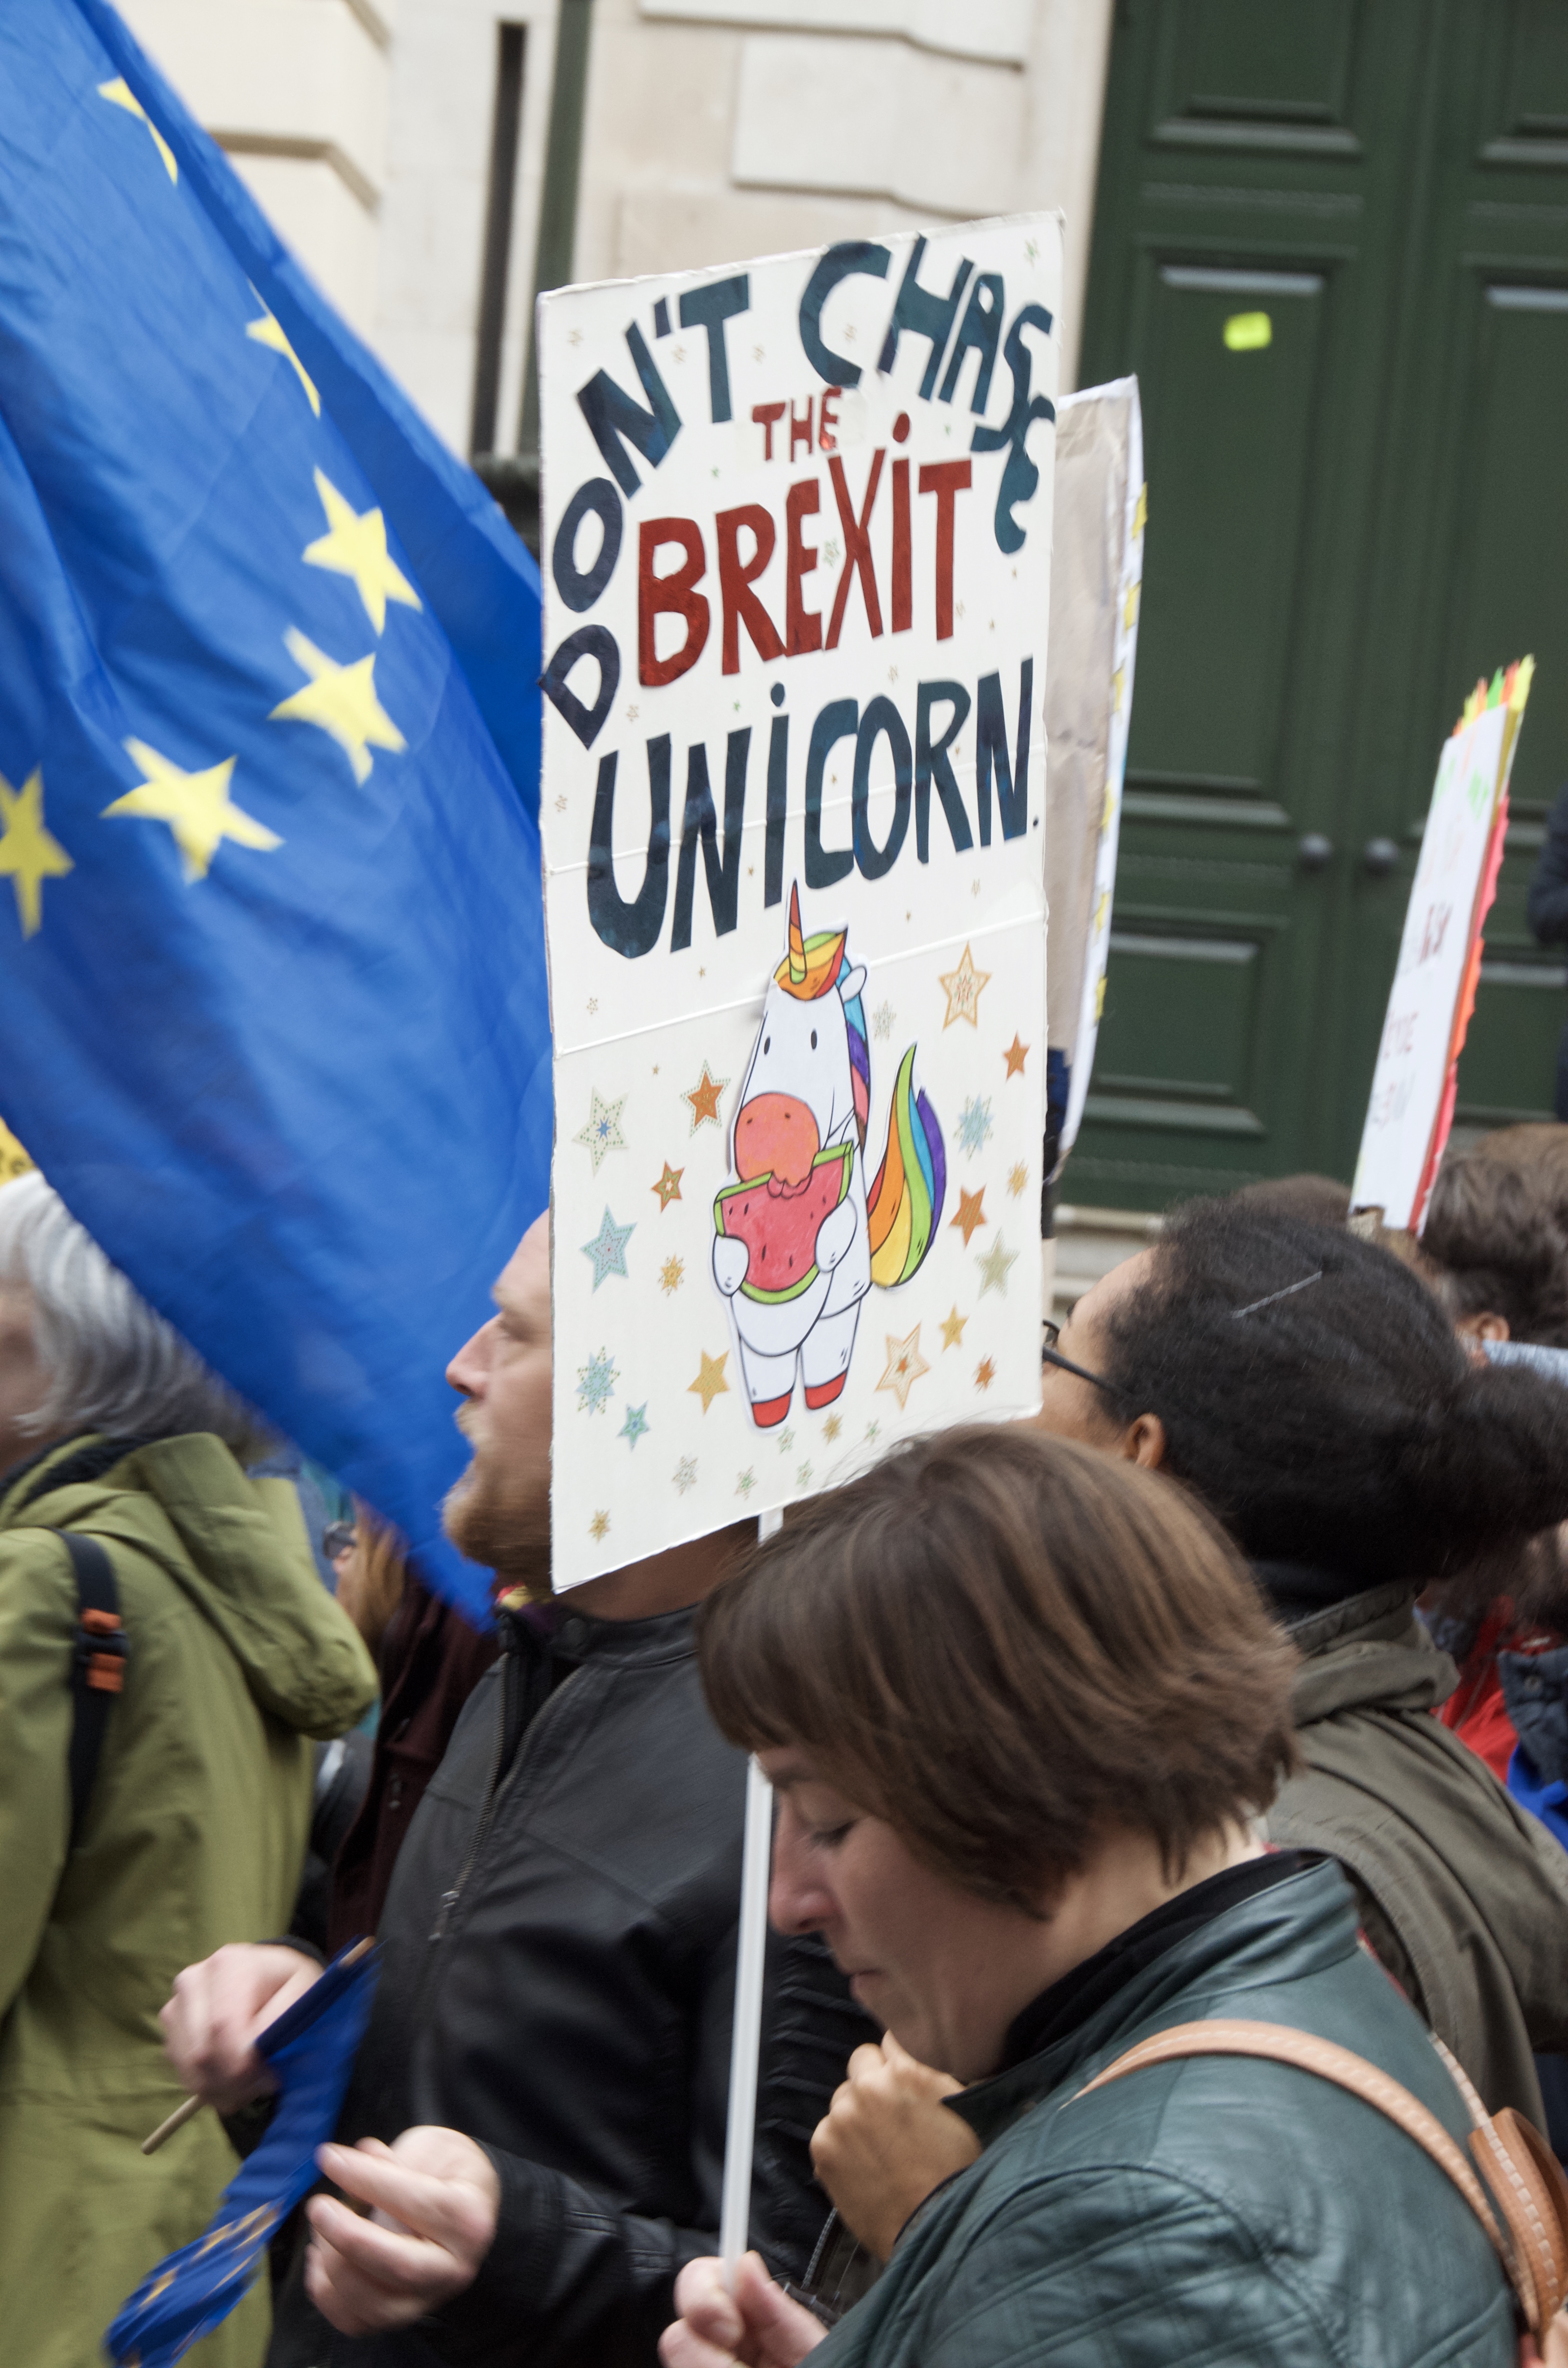 DON'T CHASE
THE
BREXiT
UNiCORN.